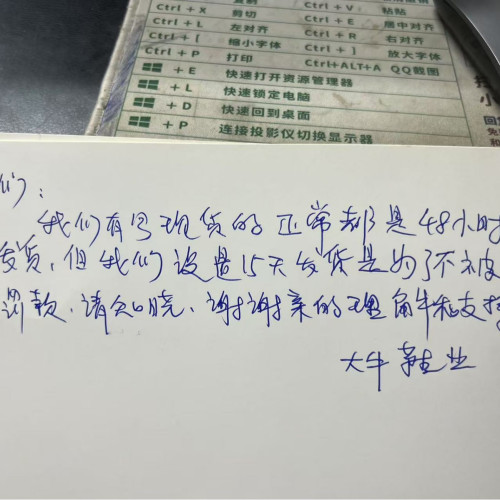 复制 Ctrl + V 粘贴
Ctrl + X 剪切 Ctrl + E 居中对齐
Ctrl + L 左对齐 Ctrl + R 右对齐
Ctrl + [ 缩小字体 Ctrl + ] 放大字体
Ctrl + P 打印 Ctrl+ALT+A QQ截图
+ E 快速打开资源管理器
+ L 快速锁定电脑
+ D 快速回到桌面
+ P 连接投影仪切换显示器
们:
我们有写现货的正常都是48小时
发货,但我们设置15天发货是为了不被
罚款.请知晓.谢谢亲的理解和支持
大牛鞋业